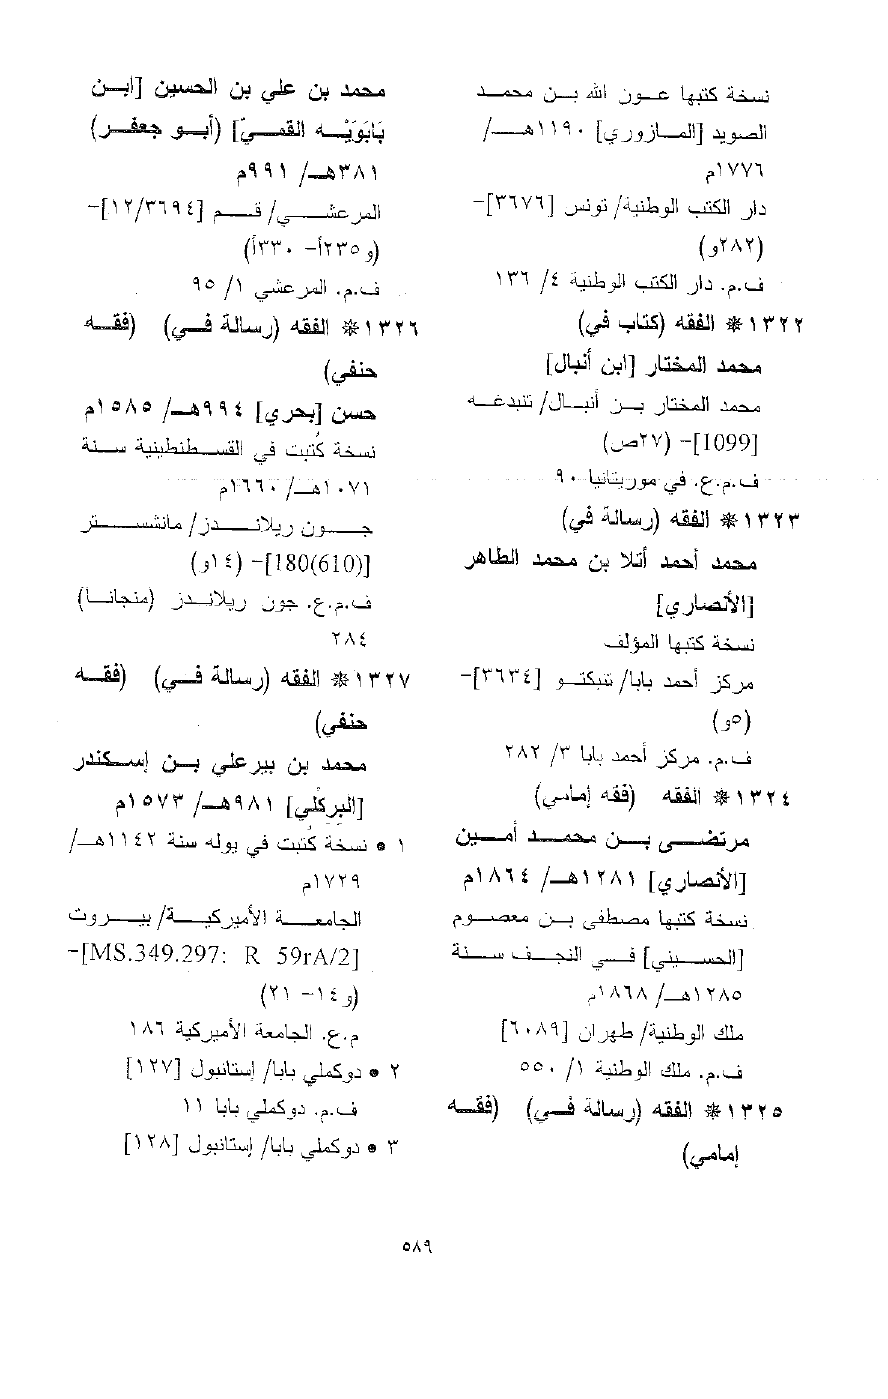 نسخة كتبها عون الله بن محمد
الصويد [المازوري] ١١٩٠هـ/
١٧٧٦م
دار الكتب الوطنية/ تونس [٣٦٧٦]-
(٢٨٢و)
ف.م. دار الكتب الوطنية ٤/ ١٣٦
١٣٢٢* الفقه (كتاب في)
محمد المختار [ابن أنبال]
محمد المختار بن أنبال/ تنبدغه
[1099]- (٢٧ص)
ف.م.ع. في موريتانيا ٩٠
١٣٢٣* الفقه (رسالة في)
محمد أحمد أتلا بن محمد الطاهر
[الأنصاري]
نسخة كتبها المؤلف
مركز أحمد بابا/ تنبكتو [٣٦٣٤]-
(٥و)
ف.م. مركز أحمد بابا ٣/ ٢٨٢
١٣٢٤* الفقه (فقه إمامي)
مرتضى بن محمد أمين
[الأنصاري] ١٢٨١هـ/ ١٨٦٤م
نسخة كتبها مصطفى بن معصوم
[الحسيني] في النجف سنة
١٢٨٥هـ/ ١٨٦٨م
ملك الوطنية/ طهران [٦٠٨٩]
ف.م. ملك الوطنية ١/ ٥٥٠
١٣٢٥* الفقه (رسالة في) (فقه
إمامي)
محمد بن علي بن الحسين [ابن
بَابَوَيْه القميّ] (أبو جعفر)
٣٨١هـ/ ٩٩١م
المرعشي/ قم [١٢/٣٦٩٤]-
(و٢٣٥أ- ٣٣٠أ)
ف.م. المرعشي ١/ ٩٥
١٣٢٦* الفقه (رسالة في) (فقه
حنفي)
حسن [بحري] ٩٩٤هـ/ ١٥٨٥م
نسخة كُتبت في القسطنطينية سنة
١٠٧١هـ/ ١٦٦٠م
جون ريلاندز/ مانشستر
[180(610)]- (١٤و)
ف.م.ع. جون ريلاندز (منجانا)
٢٨٤
١٣٢٧* الفقه (رسالة في) (فقه
حنفي)
محمد بن بيرعلي بن إسكندر
[البركُلي] ٩٨١هـ/ ١٥٧٣م
١ • نسخة كُتبت في يوله سنة ١١٤٢هـ/
١٧٢٩م
الجامعة الأميركية/ بيروت
[MS.349.297: R 59rA/2]-
(و١٤- ٢١)
م.ع. الجامعة الأميركية ١٨٦
٢ • دوكملي بابا/ إستانبول [١٢٧]
ف.م. دوكملي بابا ١١
٣ • دوكملي بابا/ إستانبول [١٢٨]
٥٨٩